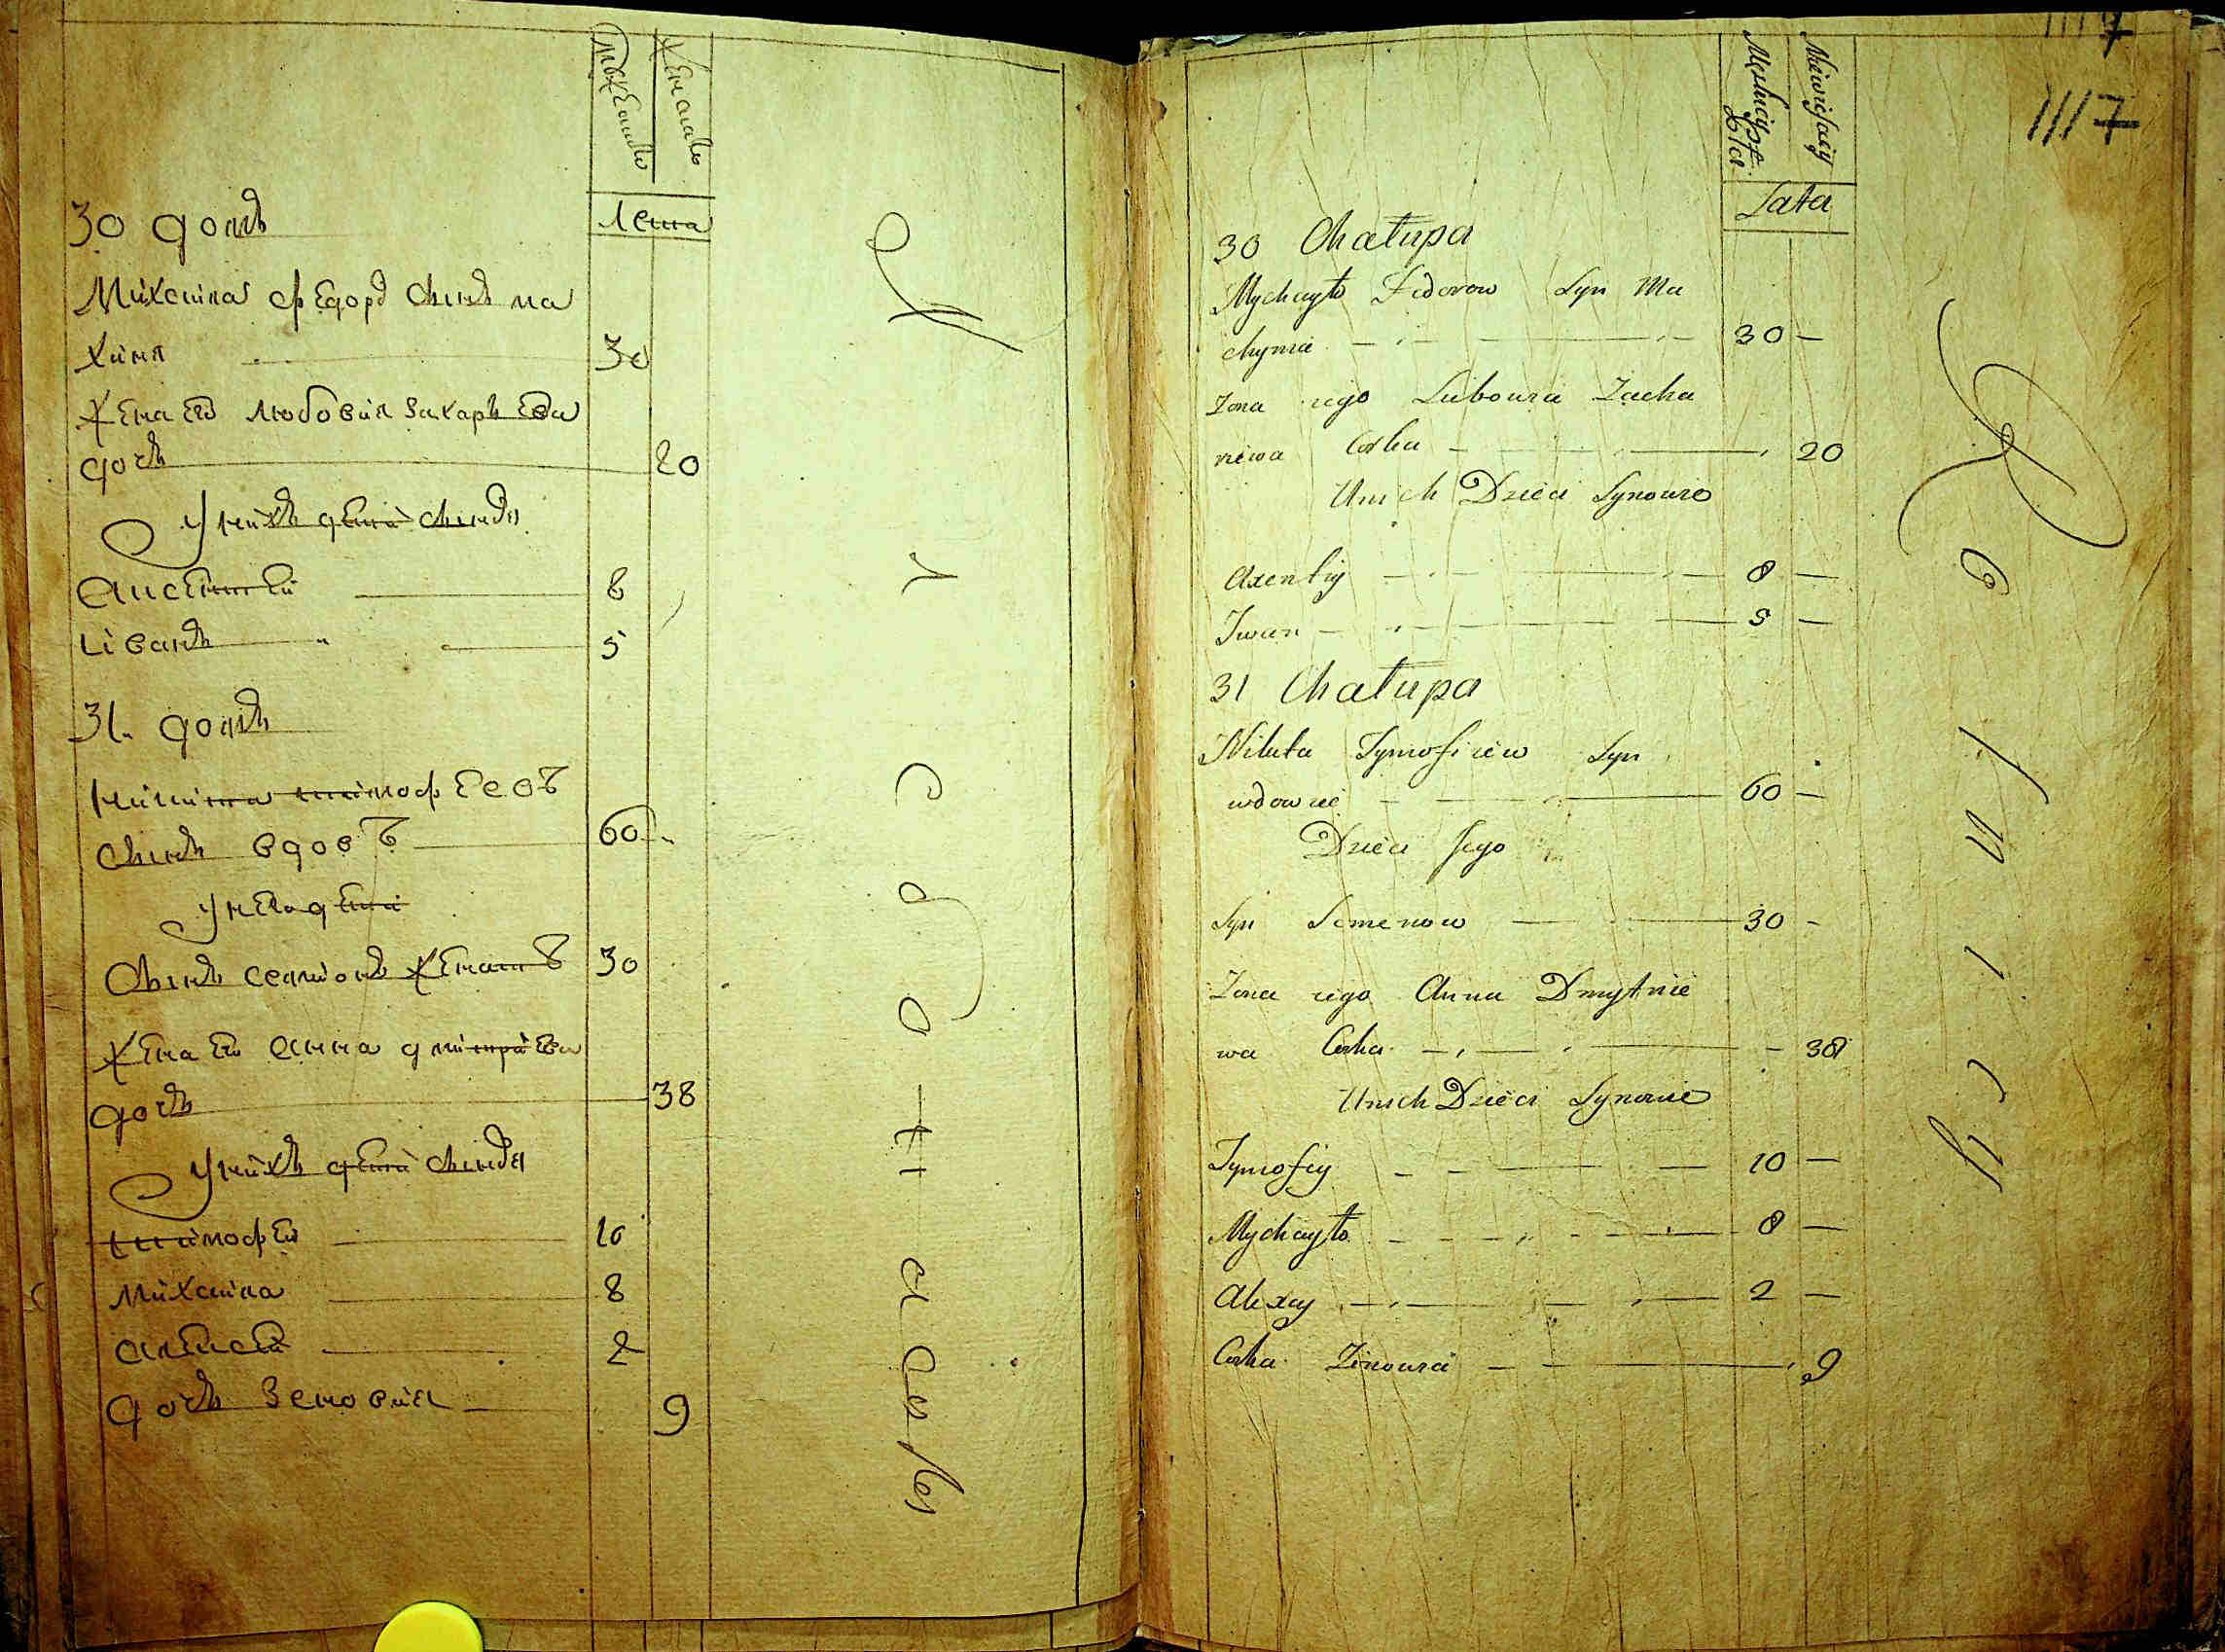 Мужеска
Женска
лета
30 домъ
Михаила федоръ сынъ ма
хиня 30
Жена его любовия захарьева
дочъ 20
У нихъ дети сынове
Аксентей 8
иванъ 5
31 домъ
Никита тимофеевъ
сынъ вдовъ 60
У него дети
Сынъ семионъ женатъ 30
Жена его анна дмитриева
дочъ 38
У нихъ дети сынове
тимофей 10
Михаила 8
алексей 2
дочъ зеновия 9
1117
Męskiey płci
Niewieściey
Lata
30 Chałupa
Mychayło Fedorow Syn Ma
chynia — 30 —
Zona iego Lubowia Zacha
riewa Corka — 20
U nich Dzieci Synowie
Axentiy — 8 —
Iwan — 5 —
31 Chałupa
Nikita Tymofiiew Syn
wdowiec — 60 —
Dzieci Jego
Syn Semenow — 30 -
Zona iego Anna Dmytrie
wa Corka — 38
U nich Dzieci Synowie
Tymofiy — 10 —
Mychayło — 8 —
Alexey — 2 —
Corka Zinowia — 9